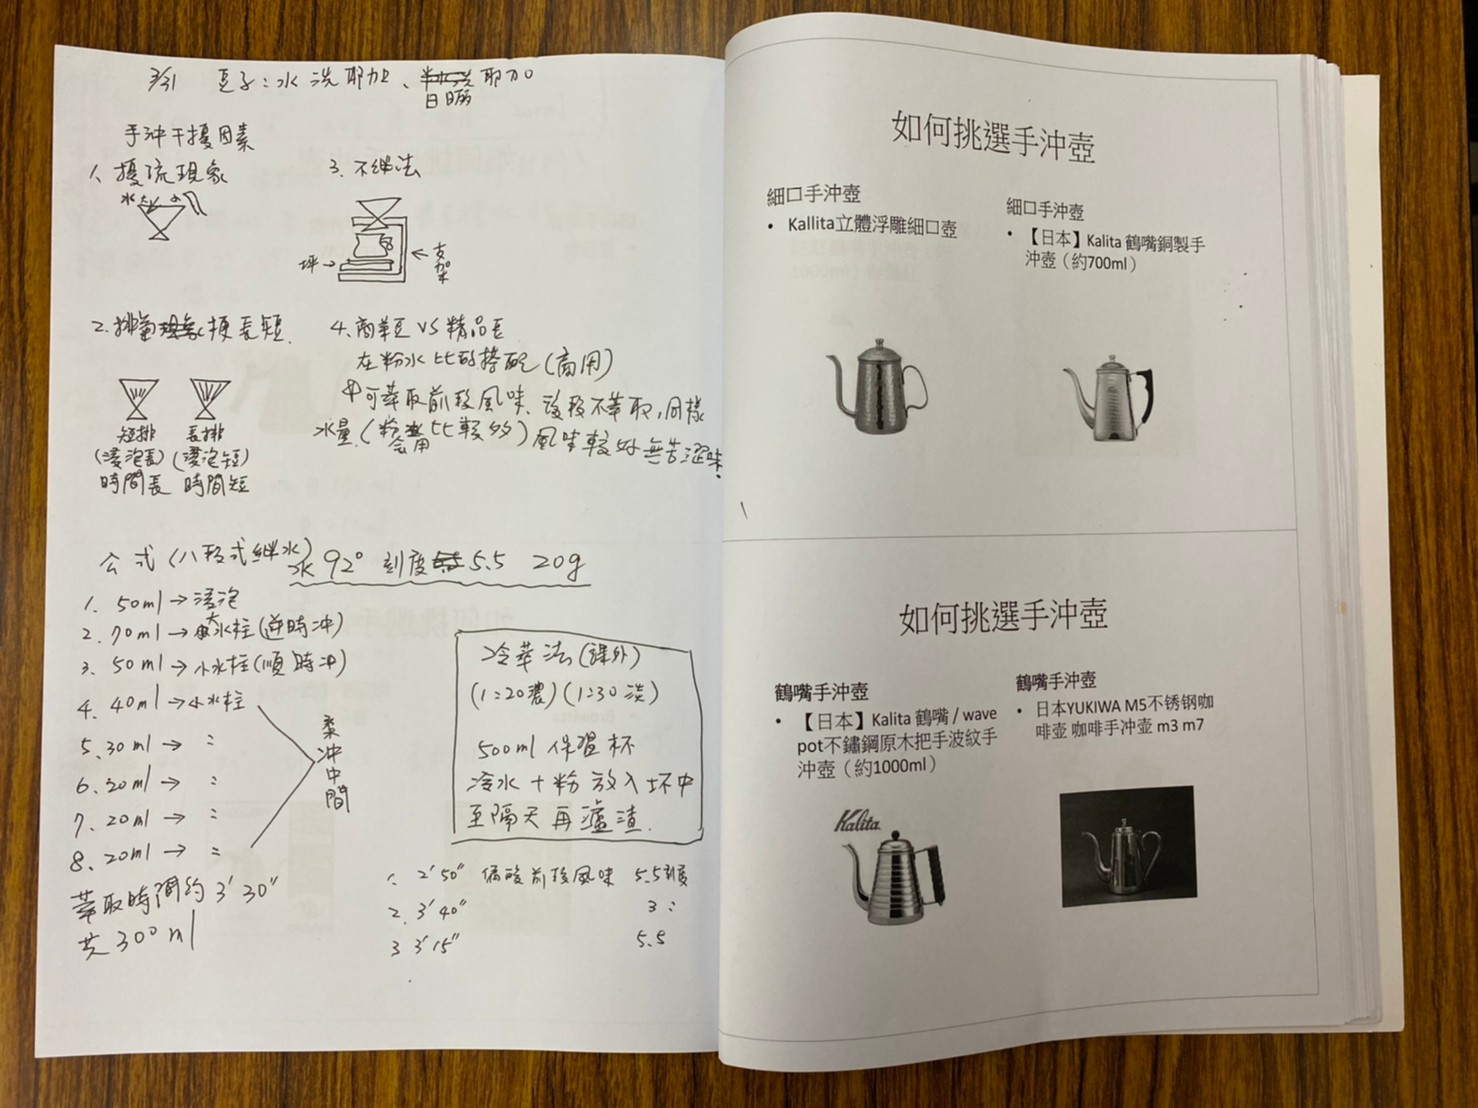 3/31 豆子:水洗耶加、耶加
日曬
手沖干擾因素
1、擾流現象
水
3. 不斷法
坪→
←支架
2. 排 梗長短.
短排 長排
(浸泡長) (浸泡短)
時間長 時間短
4、商業豆 VS 精品豆
在粉水比的搭配(商用)
可萃取前段風味、後段不萃取,同樣
水量.(粉會用比較多)風味較好無苦澀味.
公式(八段式斷水)水92° 刻度5.5 20g
1. 50ml→浸泡
2. 70ml→大水柱(逆時沖)
3. 50ml→小水柱(順時沖)
4. 40ml→小水柱
5. 30ml→ :
6. 20ml→ :
7. 20ml→ :
8. 20ml→ :
沖中間
萃取時間約3'30"
共300ml
冷萃法(課外)
(1:20濃)(1:30淡)
500ml 保溫杯
冷水+粉放入坏中
至隔天再瀘渣.
1. 2'50" 偏酸前段風味 5.5刻度
2. 3'40" 3 :
3 3'15" 5.5
如何挑選手沖壺
細口手沖壺
• Kallita立體浮雕細口壺
細口手沖壺
• 【日本】Kalita 鶴嘴銅製手
沖壺(約700ml)
如何挑選手沖壺
鶴嘴手沖壺
• 【日本】Kalita 鶴嘴 / wave
pot不鏽鋼原木把手波紋手
沖壺(約1000ml)
Kalita
鶴嘴手沖壺
• 日本YUKIWA M5不锈钢咖
啡壶 咖啡手冲壶 m3 m7